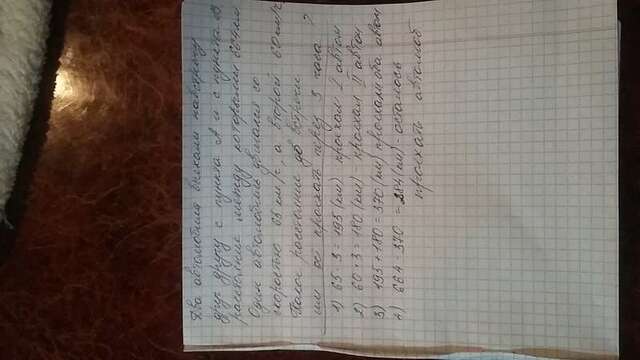 Два автомобиля выехали навстречу
друг другу с пункта А и с пункта В
расстояние между которыми 664 км
Один автомобиль двигался со
скоростью 65 км/ч, а второй 60 км/ч
Какое расстояние до встречи
им ост проехать через 3 часа ?
1) 65 · 3 = 195 (км) проехал I автом
2) 60 · 3 = 180 (км) - проехал II автом
3) 195 + 180 = 370 (км) проехали оба автом
4) 664 - 370 = 284 (км) - осталось
проехать автомоб